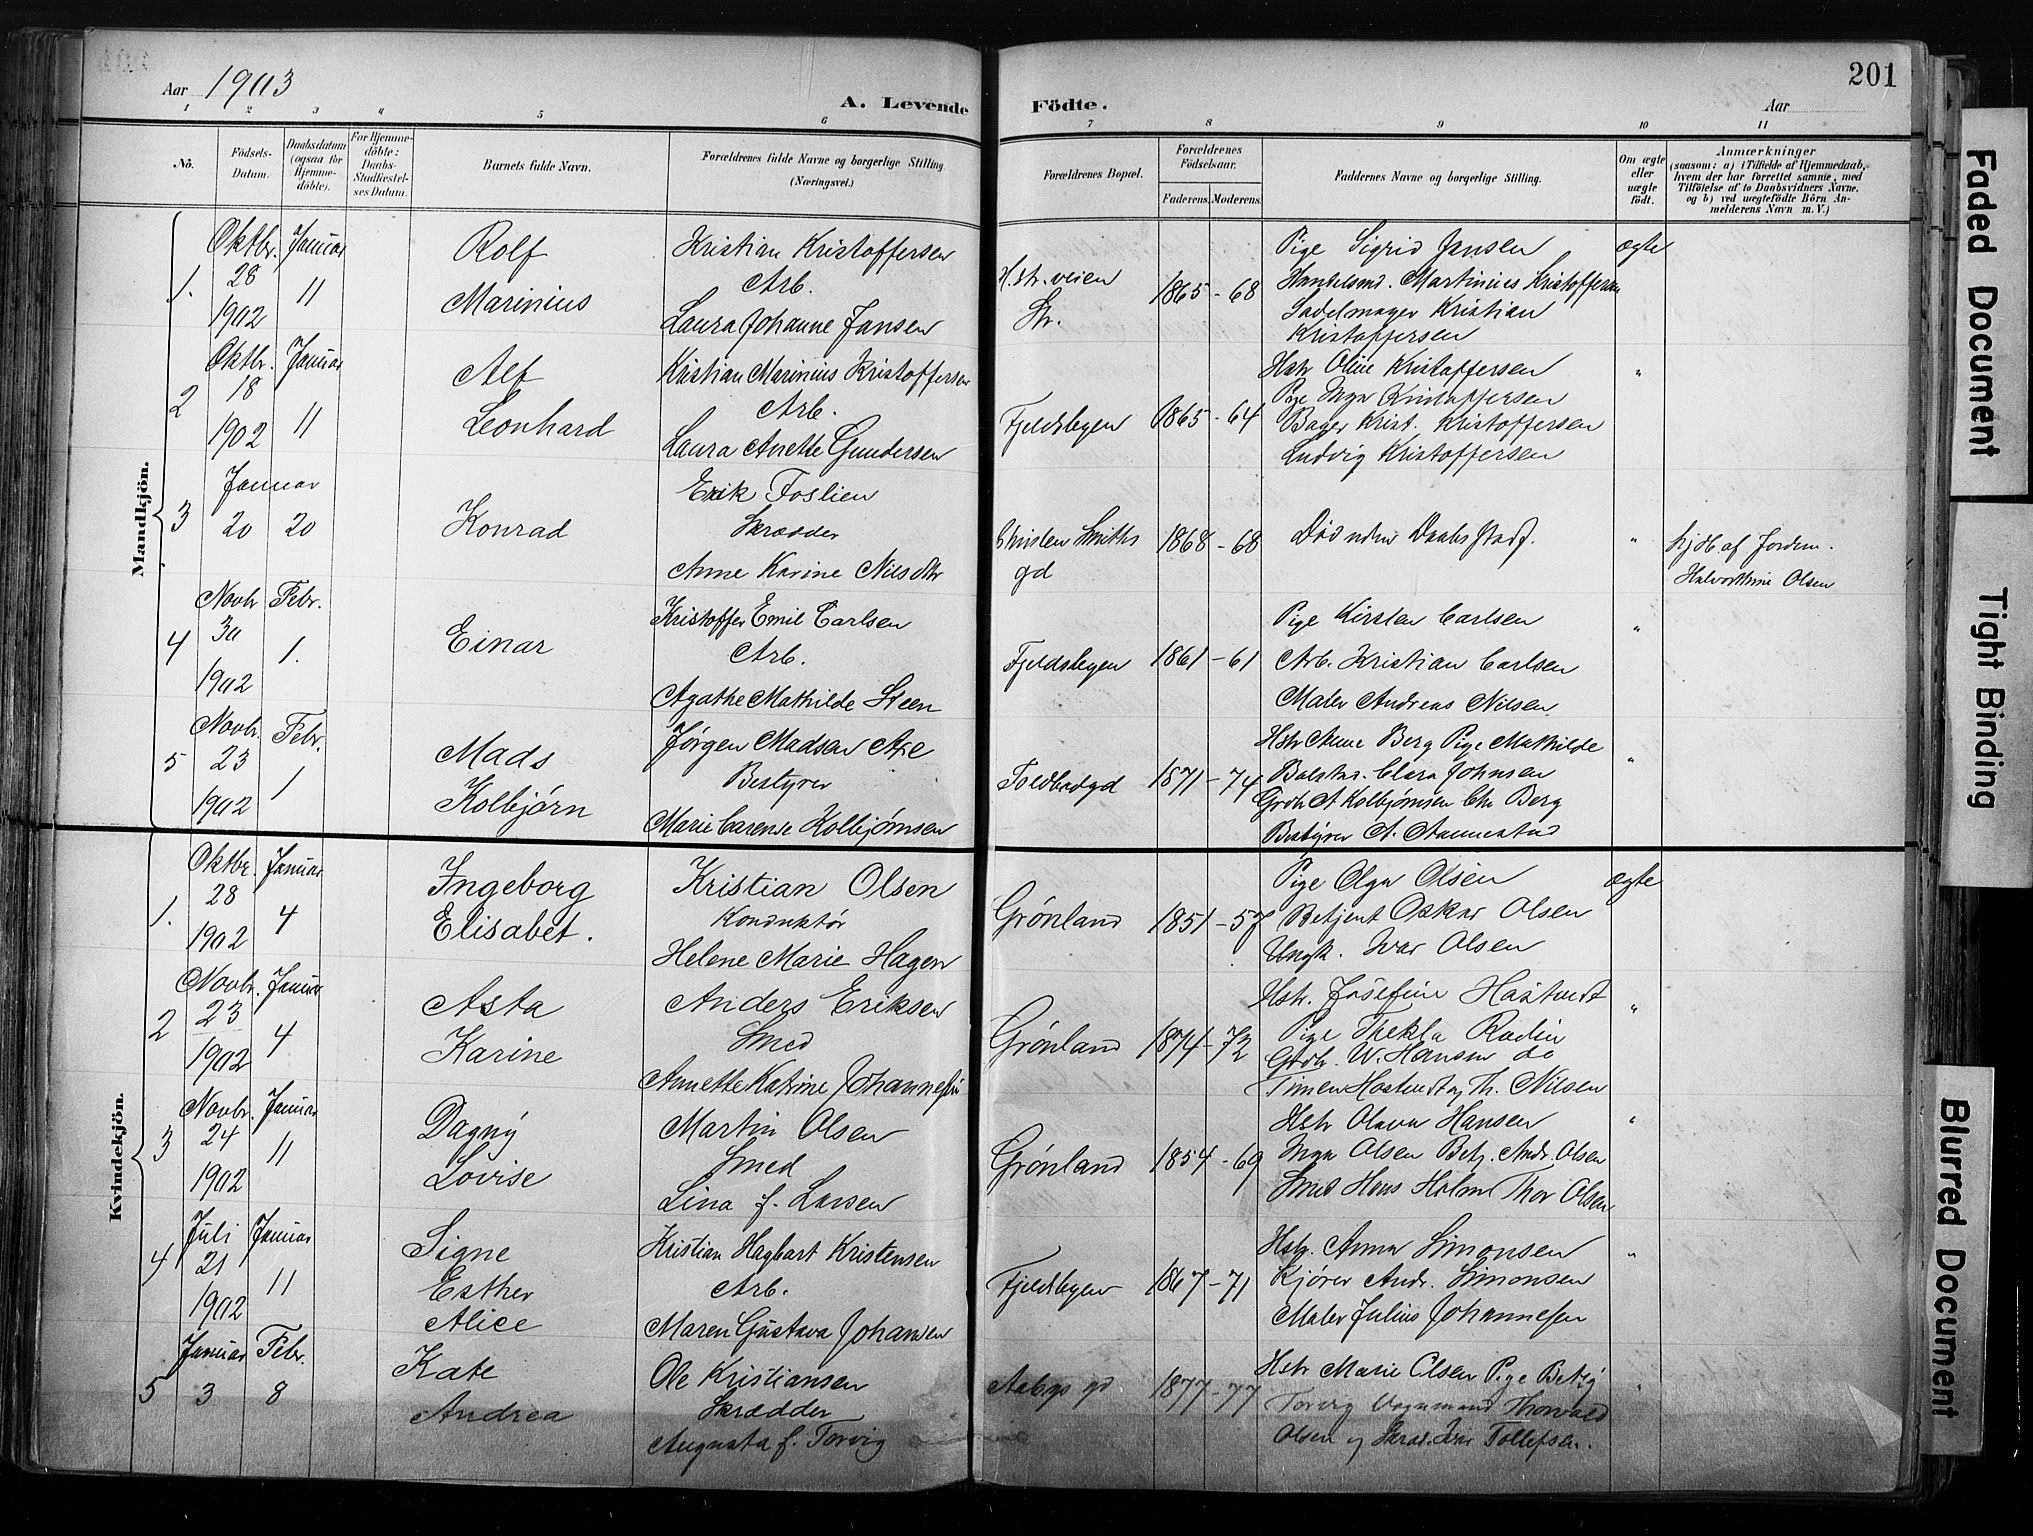 Aar 1903
A. Levende Födte.
201
Aar
1 2 3 4 5 6 7 8 9 10 11
No.
Födsels-Datum.
Daabsdatum (ogsaa for Hjemmedöbte).
For Hjemmedöbte: Daabs-Stadfæstelses Datum.
Barnets fulde Navn.
Forældrenes fulde Navne og borgerlige Stilling. (Næringsvei.)
Forældrenes Bopæl.
Forældrenes Födselsaar.
Faderens. Moderens.
Faddernes Navne og borgerlige Stilling.
Om ægte eller uægte födt.
Anmærkninger
(saasom: a) i Tilfælde af Hjemmedaab, hvem der har forrettet samme, med Tilföielse af to Daabsvidners Navne, og b) ved uægtefödte Börn Anmelderens Navn m. V.)
Mandkjön.
1. Oktbr. 28 1902
Januar 11
Rolf
Marinius
Kristian Kristoffersen
Arb.
Laura Johanne Jansen
H.str.veien
Str.
1865 - 68
Pige Sigrid Jansen
Handelsmd. Martinius Kristoffersen
Sadelmager Kristian
Kristoffersen
ægte
2 Oktbr. 18 1902
Januar 11
Alf
Leonhard
Kristian Marinius Kristoffersen
Arb.
Laura Anette Gundersen
Fjeldsbyen
1865 - 64
Hstr Oline Kristoffersen
Pige Inga Kristoffersen
Bager Krist. Kristoffersen
Ludvig Kristoffersen
"
3 Januar 20 20
Konrad
Erik Foslien
Skrædder
Anne Karine Nilsdtr
Christen Smiths
gd
1868 - 68
Død uden Daabs Stadf.
"
hjdb af Jordem.
Halvordine Olsen
4 Novbr 30 1902
Febr. 1.
Einar
Kristoffer Emil Carlsen
Arb.
Agathe Mathilde Steen
Fjeldsbyen
1861 - 61
Pige Kirsten Carlsen
Arb. Kristian Carlsen
Maler Andreas Nilsen
"
5 Novbr. 23 1902
Febr. 1
Mads
Kolbjørn
Jørgen Madsen Axe
Bestyrer
Marie Carense Kolbjørnsen
Toldbodgd
1871 - 74
Hstr Anne Berg Pige Mathilde
Clara Johnsen
Grdb A Kolbjørnsen Chr Berg
Bestyrer A. Aannestad
"
Kvindekjön.
1. Oktbr. 28 1902
Januar 4
Ingeborg
Elisabet.
Kristian Olsen
Konduktør
Helene Marie Hagen
Grønland
1851 - 57
Pige Olga Olsen
Betjent Oskar Olsen
Ungk. Ivar Olsen
ægte
2 Novbr. 23 1902
Januar 4
Asta
Karine
Anders Eriksen
Smed
Annette Katrine Johannesen
Grønland
1874 - 72
Hstr. Josefine Hostvedt
Pige Thekla Rodin
Grdb. W. Hansen do
Timen Hostvedt og Th. Nilsen
"
3 Novbr. 24 1902
Januar 11
Dagny
Lovise
Martin Olsen
Smed
Lina f. Larsen
Grønland
1854 - 69
Hstr Olava Hansen
Inga Olsen Betj. Andr. Olsen
Smed Hans Holm Thor Olsen
"
4 Juli 21 1902
Januar 11
Signe
Esther
Alice
Kristian Hagbart Kristensen
Arb.
Maren Gustava Johansen
Fjeldsbyen
1867 - 71
Hstr. Anna Simonsen
Kjører Andr. Simonsen
Maler Julius Johannesen
"
5 Januar 3
Febr. 8
Kate
Andrea
Ole Kristiansen
Skrædder
Augusta f. Torvig
Aabys gd
1877 - 77
Hstr Marie Olsen Pige Betzy
Torvig Vognmand Thorvald
Olsen og Skræd. Ivar Tollefsen.
"
Faded Document
Tight Binding
Blurred Document